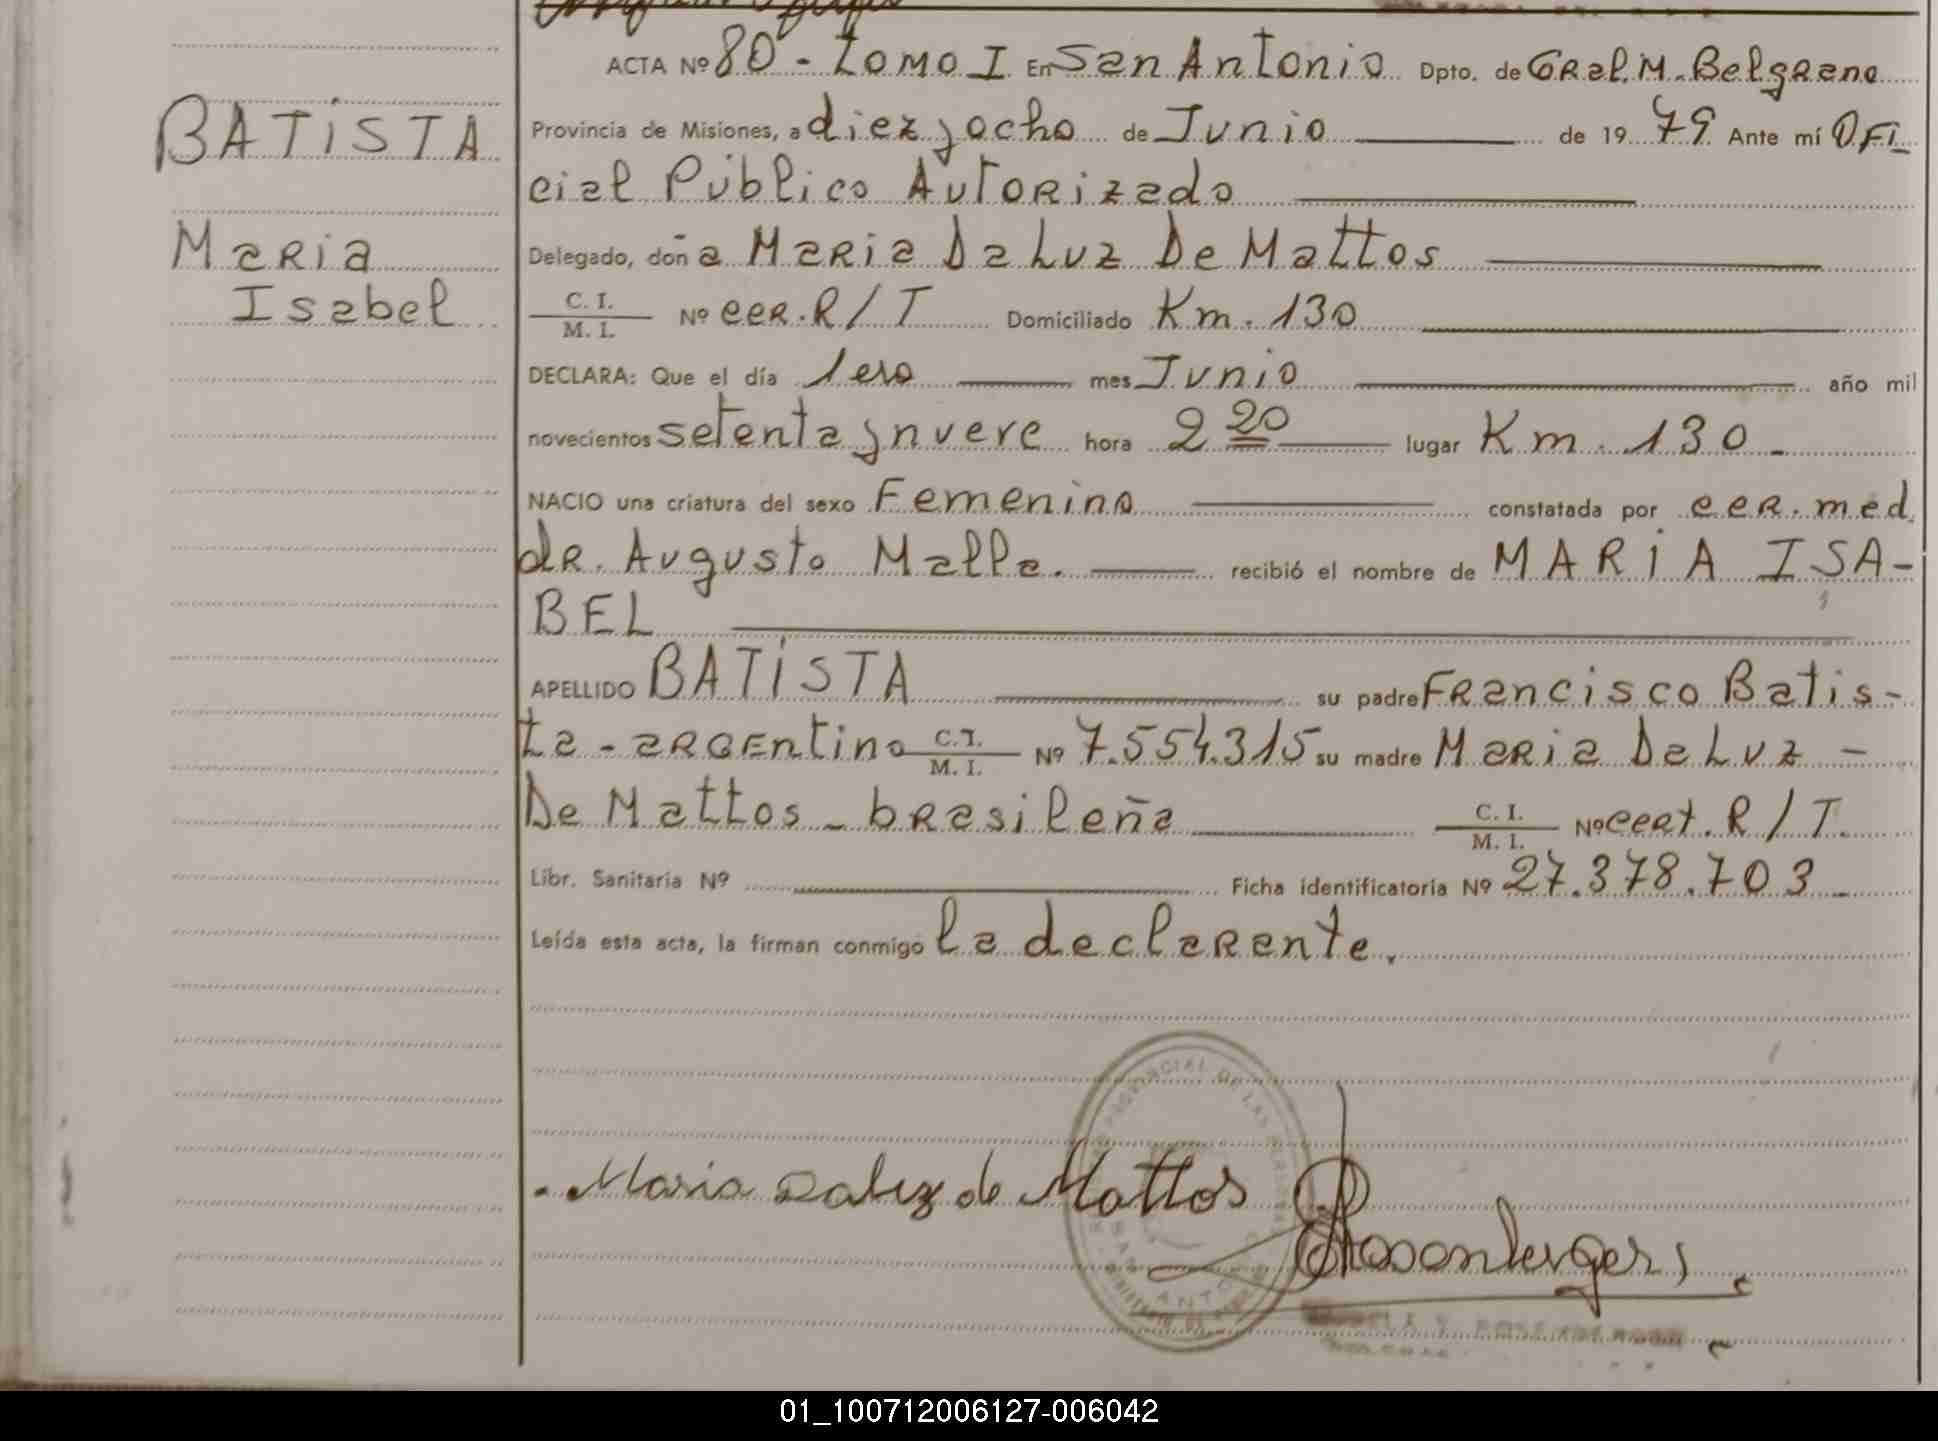 BATISTA
Maria
Isabel
ACTA Nº 80 - Tomo I En San Antonio Dpto. de Gral. M. Belgrano
Provincia de Misiones, a diez y ocho de Junio de 19 79 Ante mí Ofi
cial Público Autorizado
Delegado, doña Maria Da Luz De Mattos
C. I.
M. I. Nº cer. R/T Domiciliado Km. 130
DECLARA: Que el día 1ero mes Junio año mil
novecientos setenta y nueve hora 2 20 lugar Km. 130 -
NACIO una criatura del sexo Femenino constatada por cer. med.
dr. Augusto Malla. recibió el nombre de MARIA ISA-
BEL
APELLIDO BATISTA su padre Francisco Batis-
ta - argentino C. I. M. I. Nº 7.554.315 su madre Maria Da Luz -
De Mattos - brasileña C. I. M. I. Nº cert. R/T.
Libr. Sanitaria Nº Ficha identificatoria Nº 27.378.703 -
Leída esta acta, la firman conmigo la declarante.
PROVINCIAL DE LAS PERSONAS
SAN ANTONIO
Maria Daluz de Mattos
Rosenberger
01_100712006127-006042